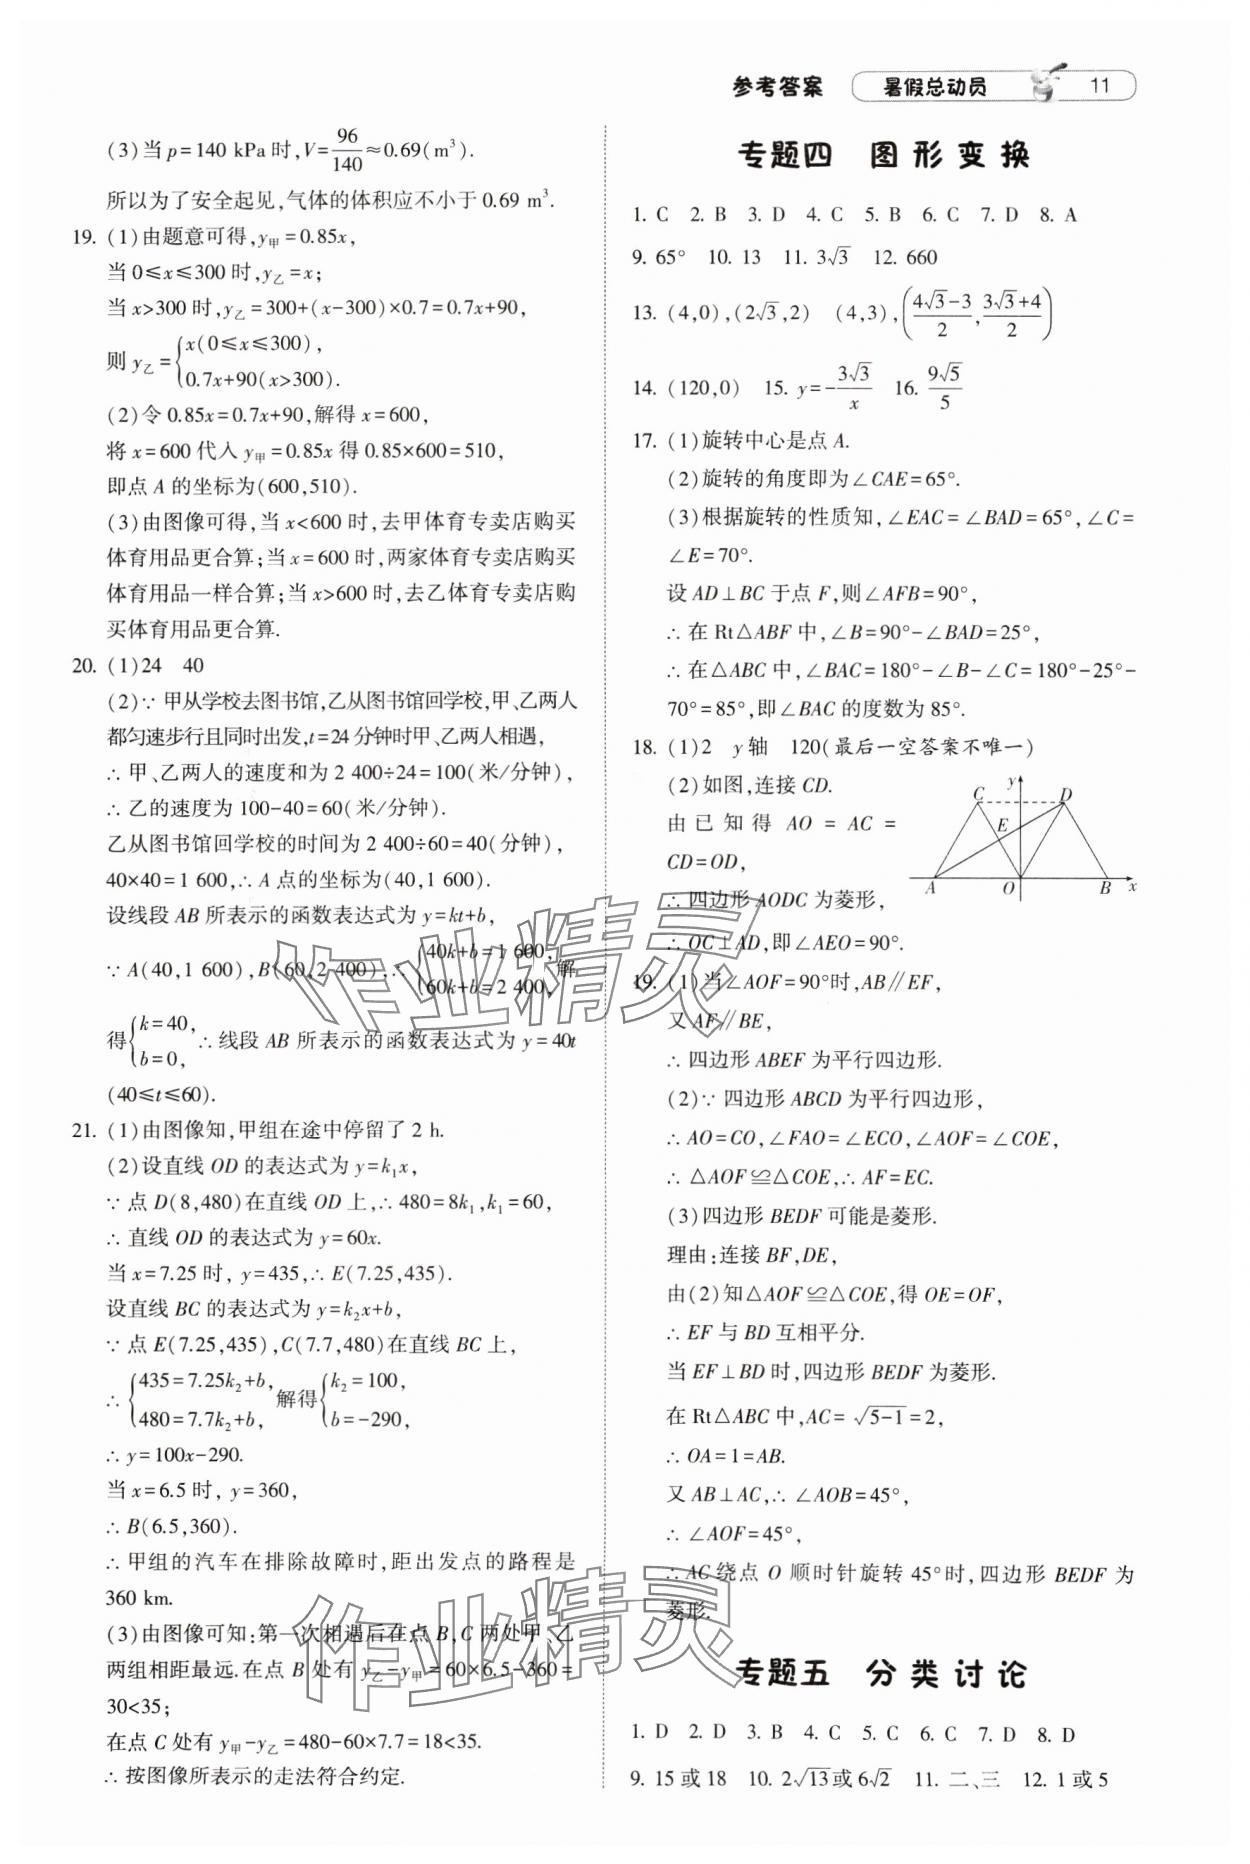 参考答案 暑假总动员 11
(3)当 p=140 kPa 时,V=96/140≈0.69(m³).
所以为了安全起见,气体的体积应不小于 0.69 m³.
19. (1)由题意可得,y甲=0.85x,
当 0≤x≤300 时,y乙=x;
当 x>300 时,y乙=300+(x-300)×0.7=0.7x+90,
则 y乙={x(0≤x≤300),
0.7x+90(x>300).
(2)令 0.85x=0.7x+90,解得 x=600,
将 x=600 代入 y甲=0.85x 得 0.85×600=510,
即点 A 的坐标为(600,510).
(3)由图像可得,当 x<600 时,去甲体育专卖店购买
体育用品更合算;当 x=600 时,两家体育专卖店购买
体育用品一样合算;当 x>600 时,去乙体育专卖店购
买体育用品更合算.
20. (1)24 40
(2)∵ 甲从学校去图书馆,乙从图书馆回学校,甲、乙两人
都匀速步行且同时出发,t=24 分钟时甲、乙两人相遇,
∴ 甲、乙两人的速度和为 2 400÷24=100(米/分钟),
∴ 乙的速度为 100-40=60(米/分钟).
乙从图书馆回学校的时间为 2 400÷60=40(分钟),
40×40=1 600,∴ A 点的坐标为(40,1 600).
设线段 AB 所表示的函数表达式为 y=kt+b,
∵ A(40,1 600),B(60,2 400),∴ {40k+b=1 600,
60k+b=2 400, 解
得{k=40,
b=0, ∴ 线段 AB 所表示的函数表达式为 y=40t
(40≤t≤60).
21. (1)由图像知,甲组在途中停留了 2 h.
(2)设直线 OD 的表达式为 y=k₁x,
∵ 点 D(8,480)在直线 OD 上,∴ 480=8k₁,k₁=60,
∴ 直线 OD 的表达式为 y=60x.
当 x=7.25 时, y=435,∴ E(7.25,435).
设直线 BC 的表达式为 y=k₂x+b,
∵ 点 E(7.25,435),C(7.7,480)在直线 BC 上,
∴ {435=7.25k₂+b,
480=7.7k₂+b, 解得{k₂=100,
b=-290,
∴ y=100x-290.
当 x=6.5 时, y=360,
∴ B(6.5,360).
∴ 甲组的汽车在排除故障时,距出发点的路程是
360 km.
(3)由图像可知:第一次相遇后在点 B,C 两处甲、乙
两组相距最远.在点 B 处有 y乙-y甲=60×6.5-360=
30<35;
在点 C 处有 y甲-y乙=480-60×7.7=18<35.
∴ 按图像所表示的走法符合约定.
专题四 图形变换
1. C 2. B 3. D 4. C 5. B 6. C 7. D 8. A
9. 65° 10. 13 11. 3√3 12. 660
13. (4,0),(2√3,2) (4,3),((4√3-3)/2,(3√3+4)/2)
14. (120,0) 15. y=-3√3/x 16. 9√5/5
17. (1)旋转中心是点 A.
(2)旋转的角度即为∠CAE=65°.
(3)根据旋转的性质知,∠EAC=∠BAD=65°,∠C=
∠E=70°.
设 AD⊥BC 于点 F,则∠AFB=90°,
∴ 在 Rt△ABF 中,∠B=90°-∠BAD=25°,
∴ 在△ABC 中,∠BAC=180°-∠B-∠C=180°-25°-
70°=85°,即∠BAC 的度数为 85°.
18. (1)2 y 轴 120(最后一空答案不唯一)
(2)如图,连接 CD.
由已知得 AO = AC =
CD=OD,
∴ 四边形 AODC 为菱形,
∴ OC⊥AD,即∠AEO=90°.
C y D
E
A O B x
19. (1)当∠AOF=90°时,AB∥EF,
又 AF∥BE,
∴ 四边形 ABEF 为平行四边形.
(2)∵ 四边形 ABCD 为平行四边形,
∴ AO=CO,∠FAO=∠ECO,∠AOF=∠COE,
∴ △AOF≌△COE,∴ AF=EC.
(3)四边形 BEDF 可能是菱形.
理由:连接 BF,DE,
由(2)知△AOF≌△COE,得 OE=OF,
∴ EF 与 BD 互相平分.
当 EF⊥BD 时,四边形 BEDF 为菱形.
在 Rt△ABC 中,AC=√5-1=2,
∴ OA=1=AB.
又 AB⊥AC,∴ ∠AOB=45°,
∴ ∠AOF=45°,
∴ AC 绕点 O 顺时针旋转 45°时,四边形 BEDF 为
菱形.
专题五 分类讨论
1. D 2. D 3. B 4. C 5. C 6. C 7. D 8. D
9. 15 或 18 10. 2√13或 6√2 11. 二、三 12. 1 或 5
作业精灵
作业精灵